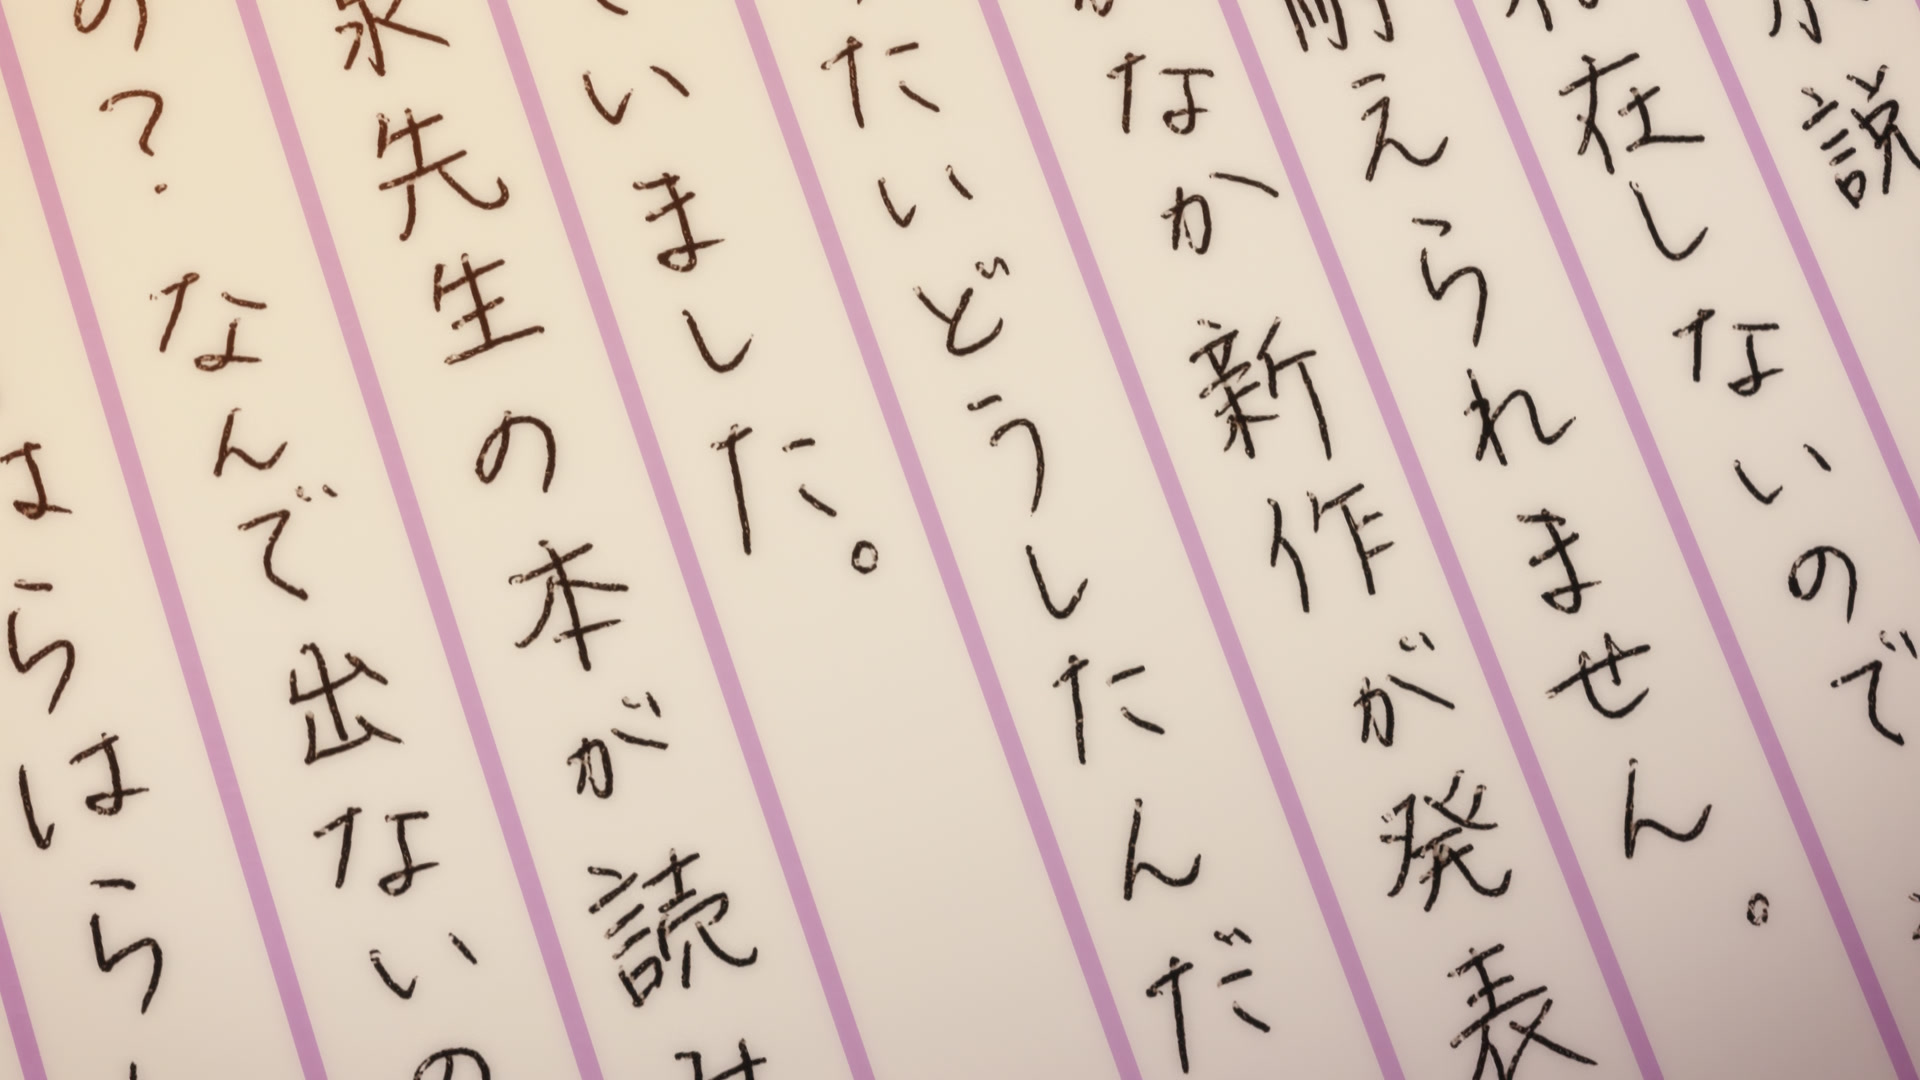 説
在しないので
耐えられません。
なか新作が発表
たいどうしたんだ
いました。
泉先生の本が読み
の?なんで出ないの
はらはら